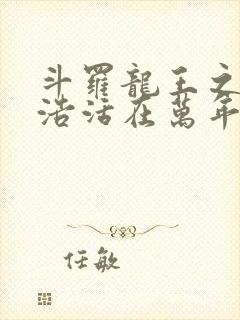 斗羅龍王之
浩活在萬年
任敏